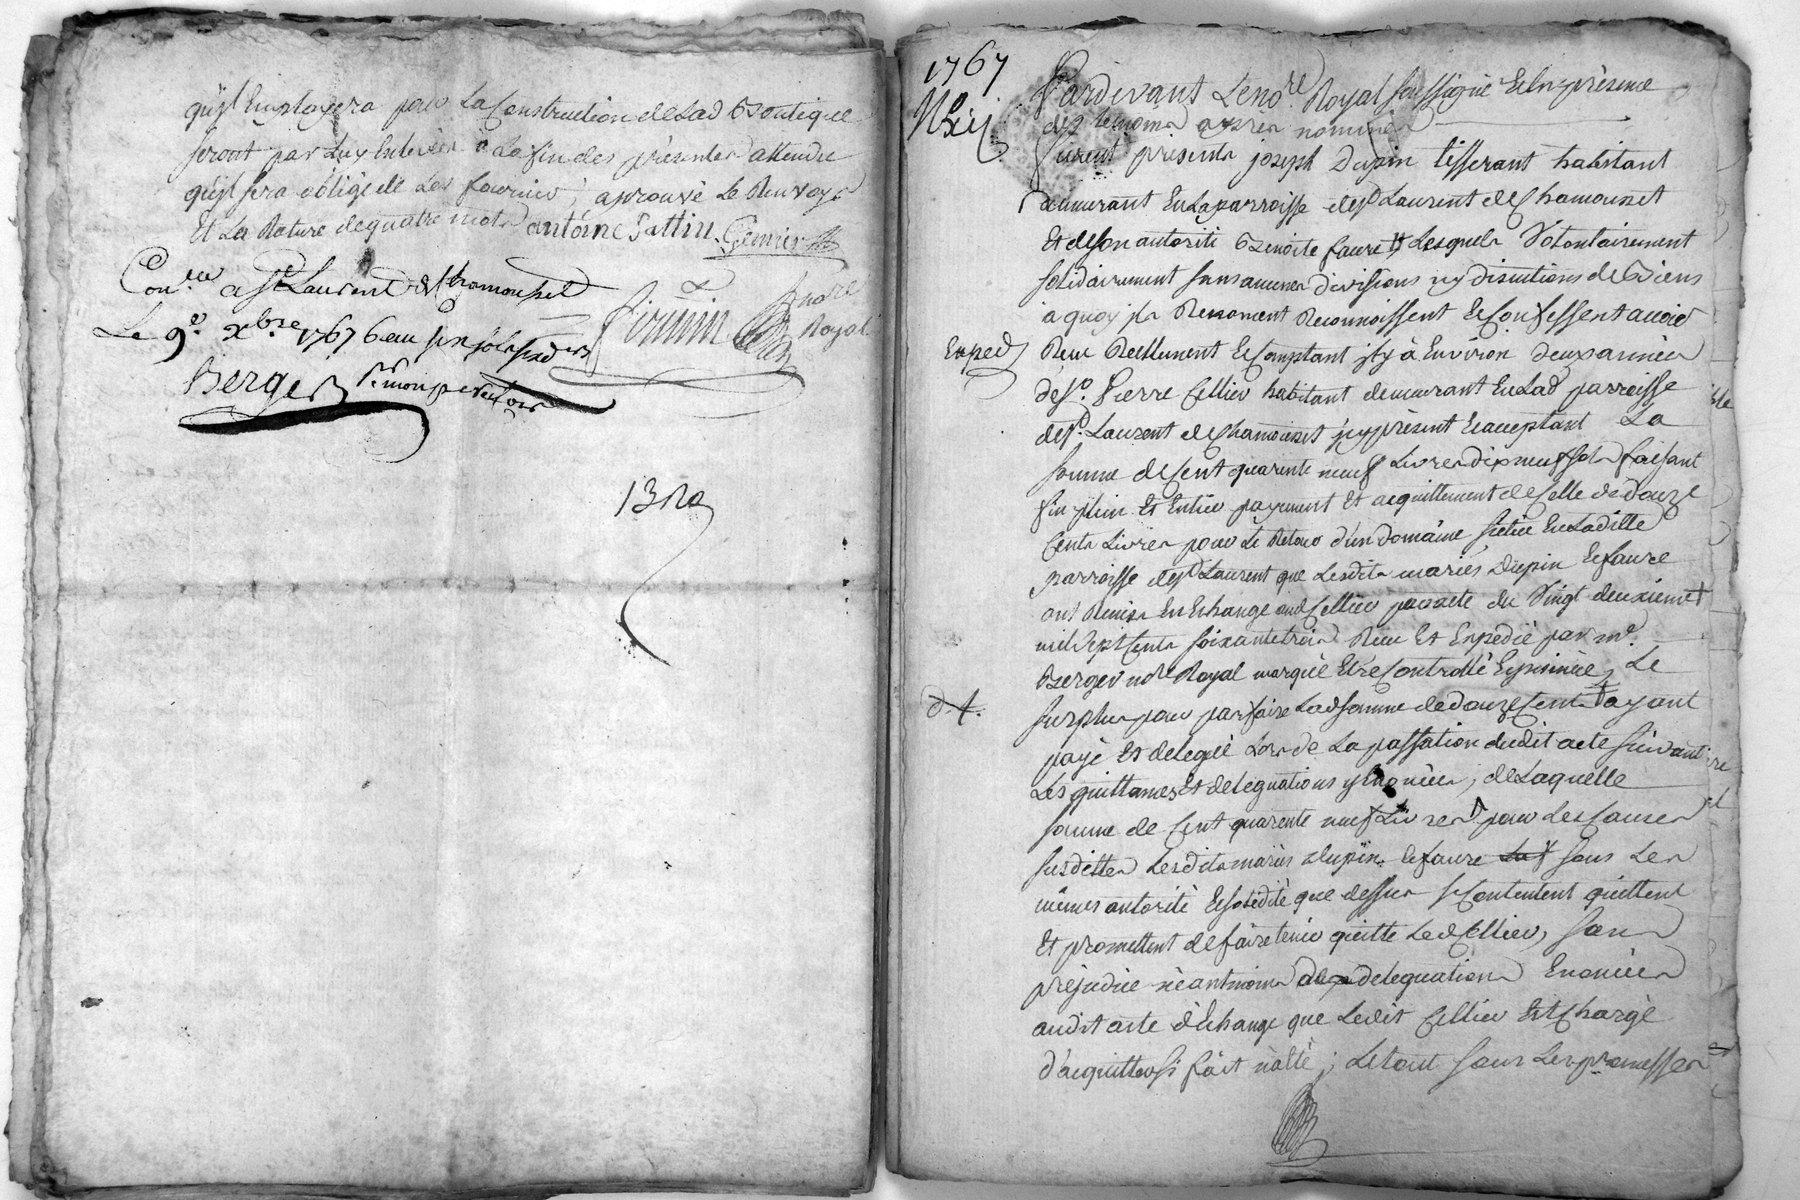 qu'jl Employera pour La Construction de Lad Boutique
seront par Luy à La fin des présentes attendu
qu'jl sera obligé de Les fournir; aprouvé Le Renvoy
Et La Rature de quatre mots antoine Pattin Grenier
Con.lle a St Laurent de Chamousset
Le 9e. xbre 1767
Berger
Firmin nore Royal
1767
Pardevant Le nore. Royal soussigné Et En présence
des temoins après nommés
furent présents joseph Dupin tisserant habitant
demeurant En La parroisse de St Laurent de Chamousset
Et de son autorité Benoite faure Lesquels Volontairement
solidairement sans aucunes divisions ny discutions de Biens
à quoy jls Renoncent Reconnoissent Et Confessent avoir
Exped
Reçu Reellement Et Comptant jl y à Environ deux années
de sr. Pierre Cellier habitant demeurant En Lad parroisse
de St. Laurent de Chamousset jcy présent Et acceptant La
somme de Cent quarente neuf Livres dix neuf sols faisant
fin plein Et Entier payement Et acquittement de Celle de douze
Cents Livres pour Le Retour d'un domaine scitué En Laditte
parroisse de St Laurent que Lesdits mariés Dupin Et faure
ont Remis En Echange aud Cellier par acte du Vingt deuxieme
mil sept Cents soixante trois Reçu Et Expedié par me.
Berger nore Royal marqué Etre Controllé Le
surplus pour parfaire Lad somme de douze Cents ayant
payé Et delegué Lors de La passation dudit acte suivant
Les quittances Et deleguations y Enoncées; de Laquelle
somme de Cent quarente neuf Livres pour Les Causes
susdittes Lesdits mariés Dupin Et faure sous Les
mêmes autorité Et solidité que dessus se Contentent quittent
Et promettent de faire tenir quitte Led Cellier, sans
préjudice néantmoins deleguations Enoncées
audit acte d'Echange que Ledit Cellier Est Chargé
d'acquitter si fait n'a Eté; Le tout sous Les promesses